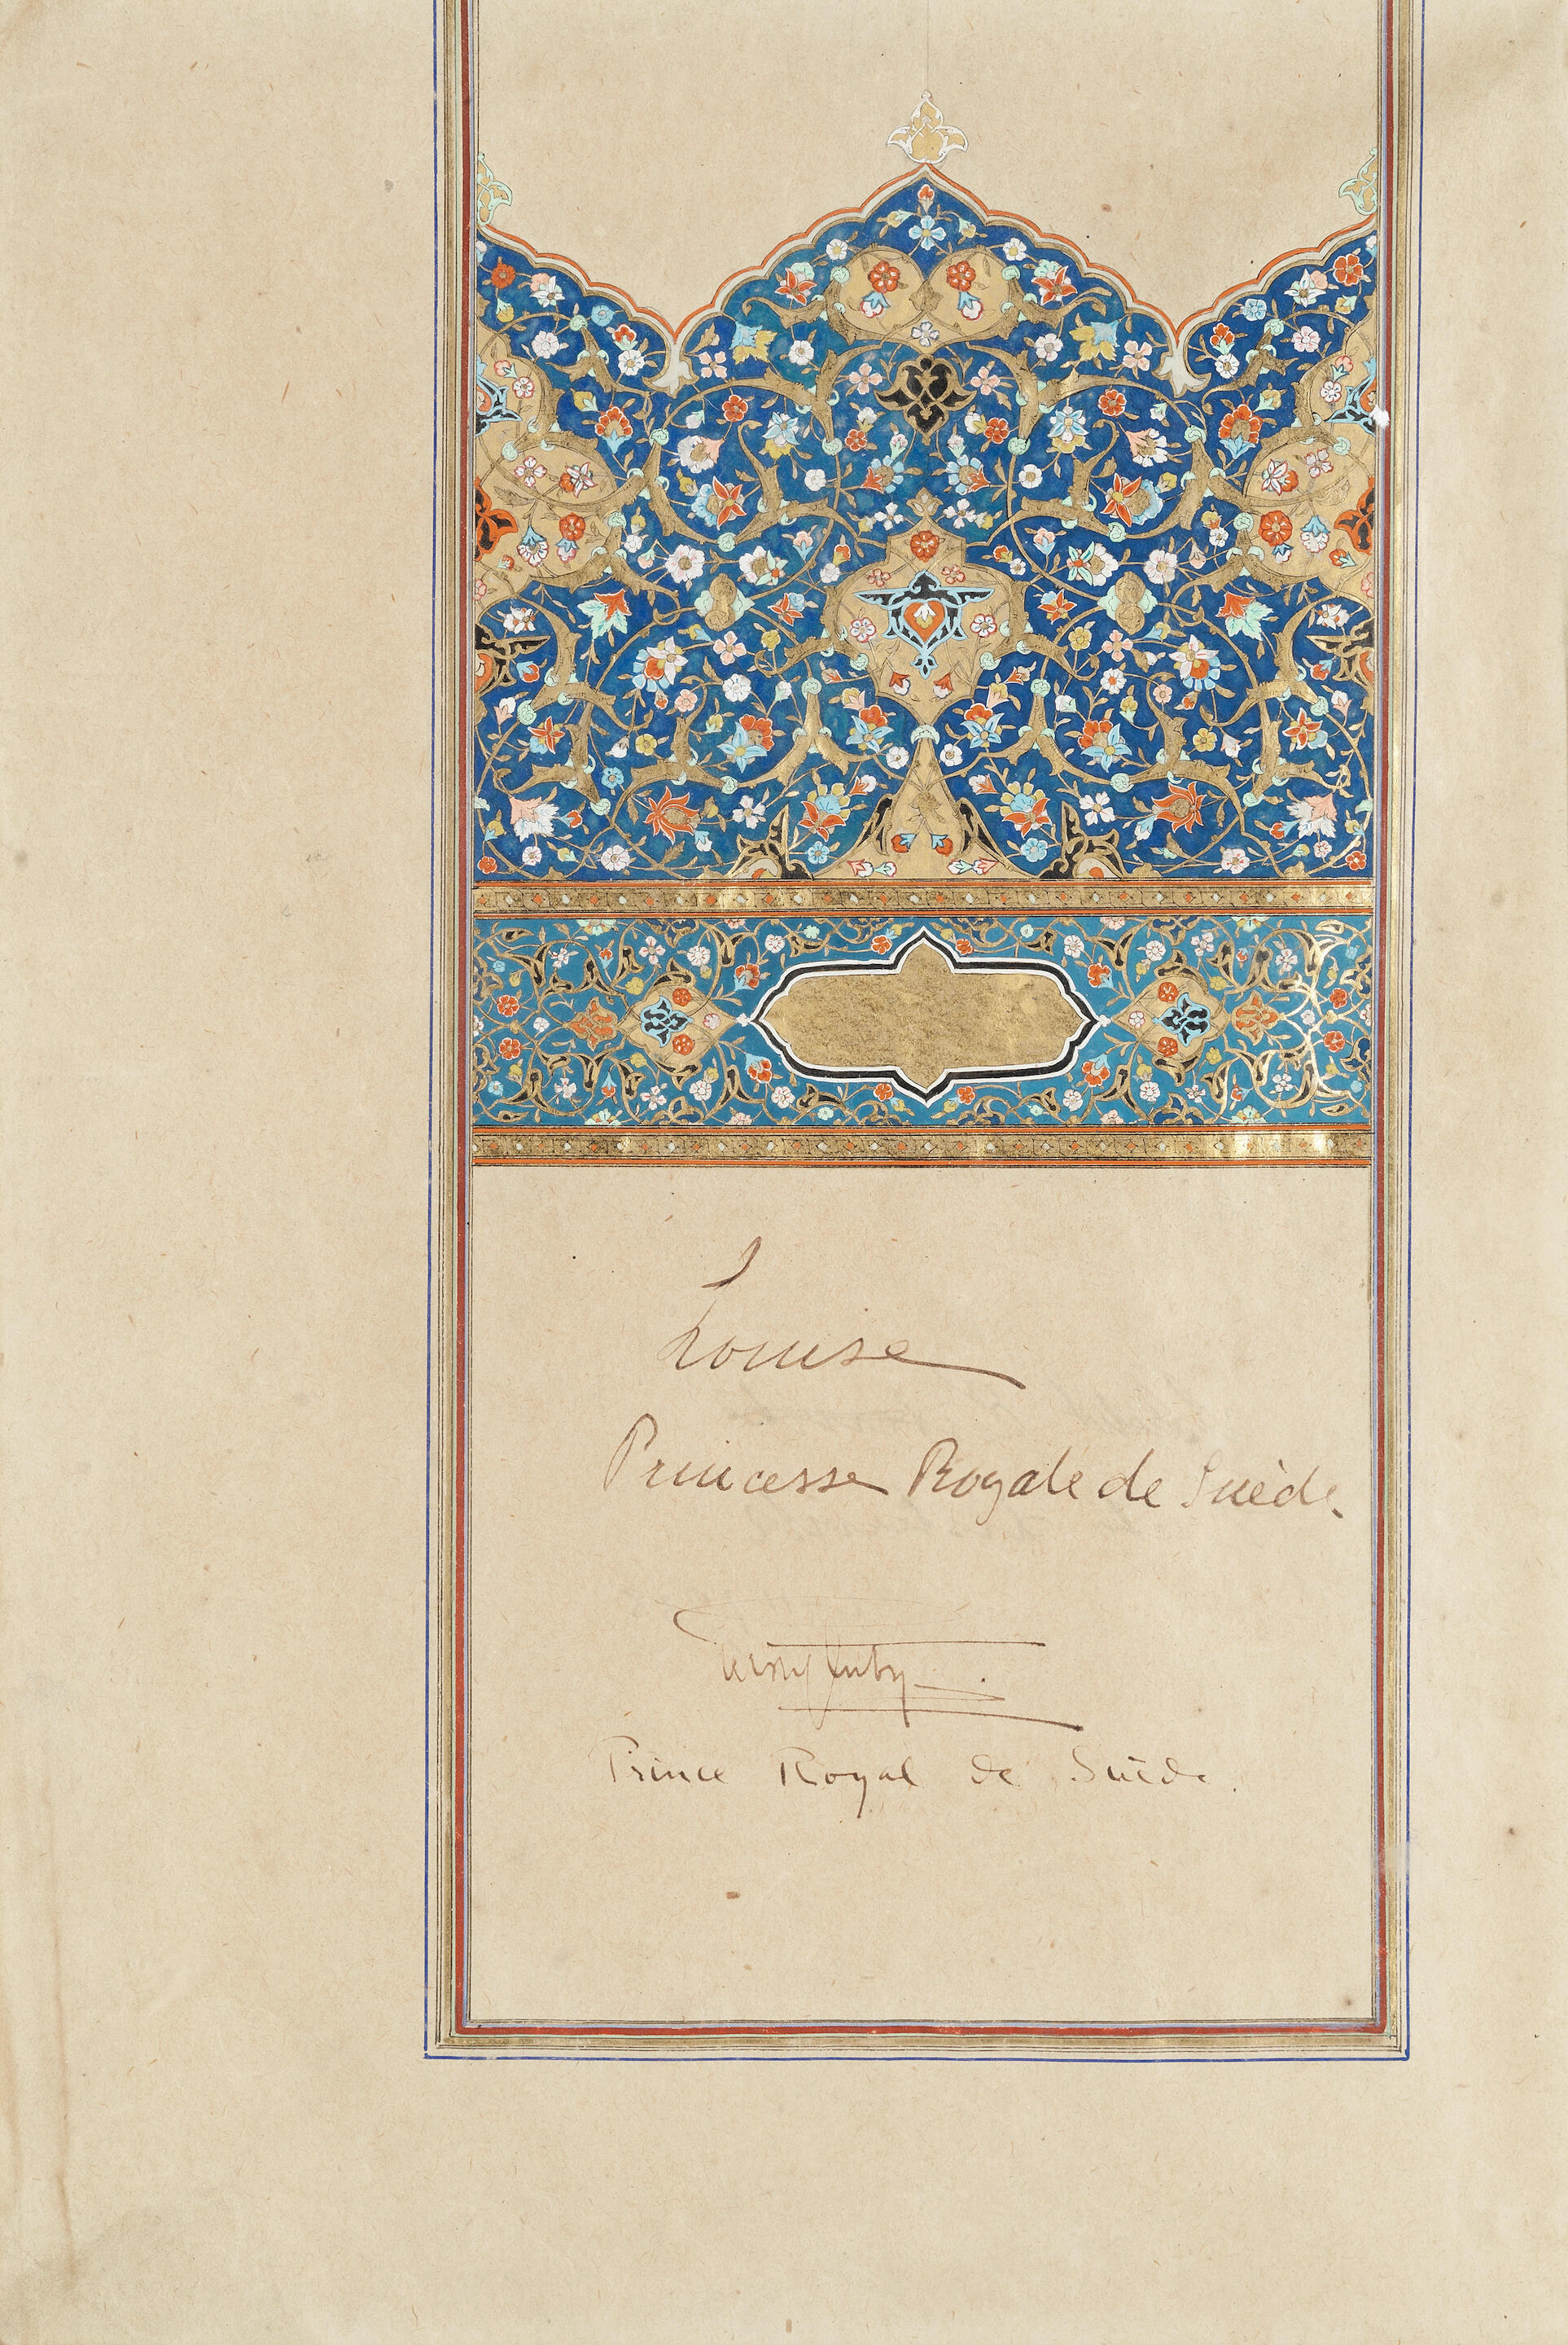 Louise
Princesse Royale de Suède
Prince Royal de Suède.